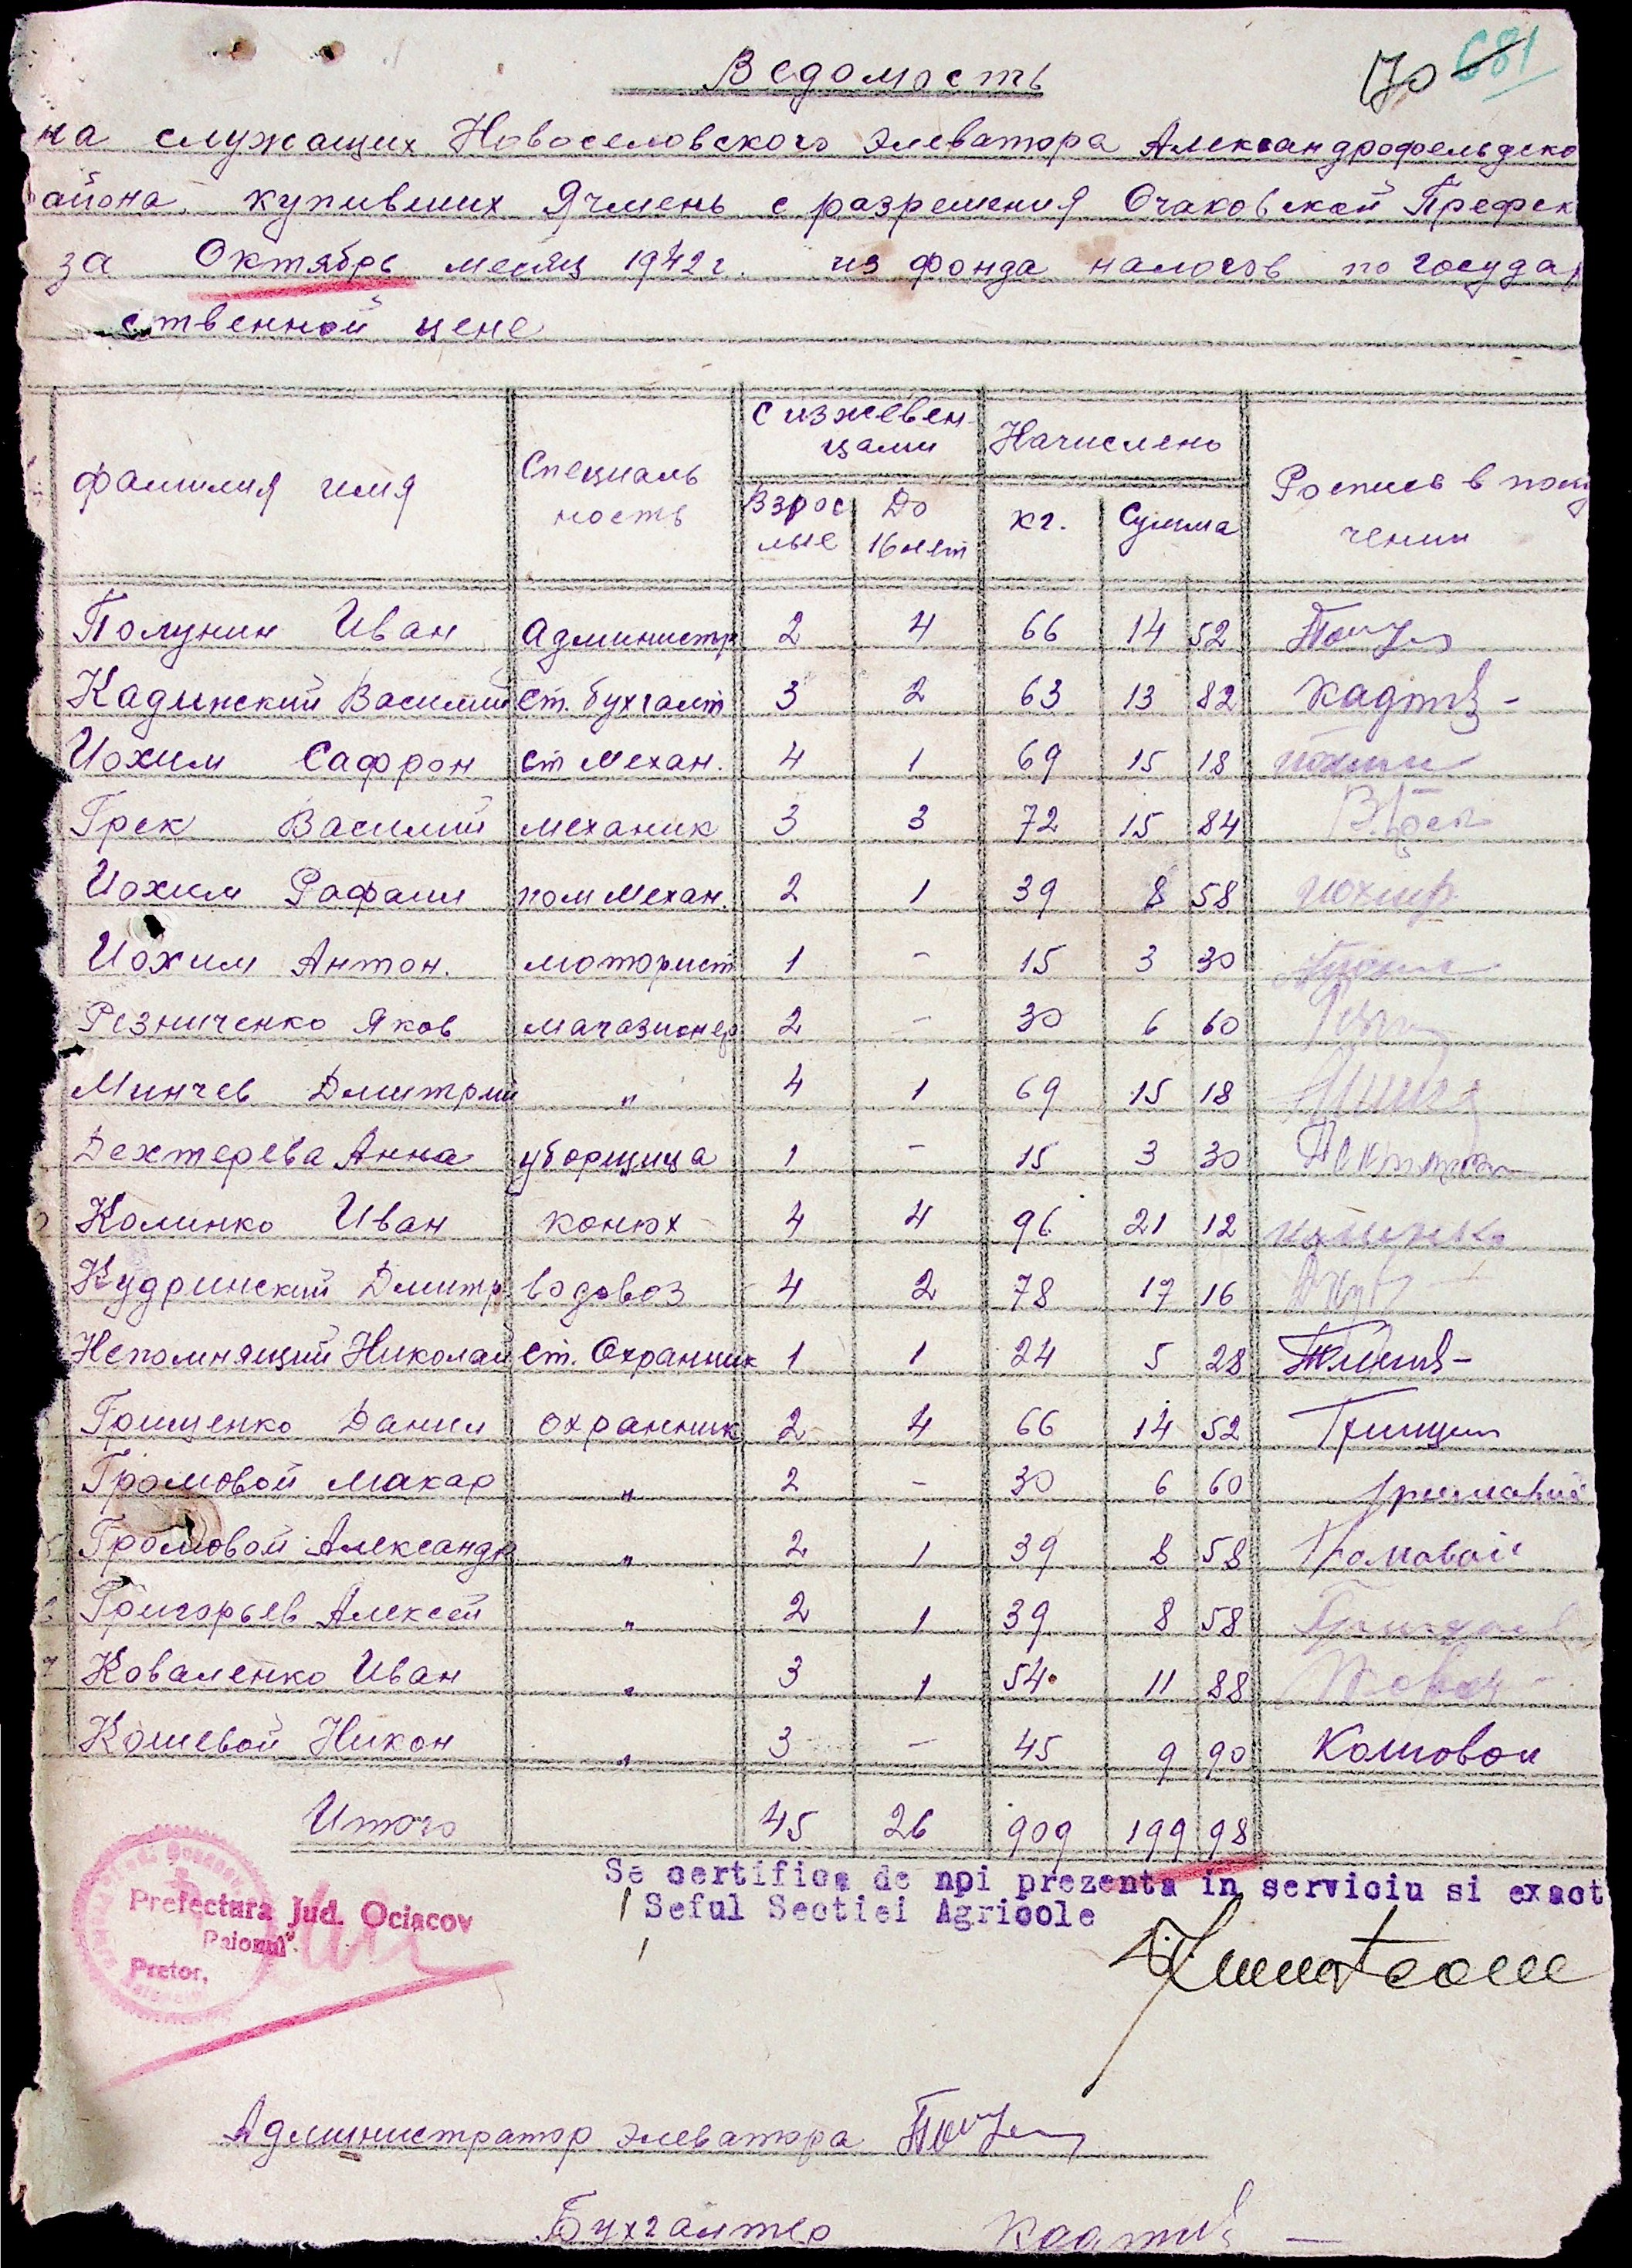 170 681
Ведомость
на служащих Новоселовского элеватора Александрофельдско
айона купивших Ячмень с разрешения Очаковской Префек
за Октябрь месяц 1942г. из фонда налогов по государ
ственной цене
фамилия имя Специаль ность С изжевен- цами Взрос лые До 16 лет Начислено кг. Сумма Роспись в полу чении
Полунин Иван Администр 2 4 66 14 52
Кадинский Василий ст. бухгалт 3 2 63 13 82
Иохим Сафрон ст механ. 4 1 69 15 18 Иохим
Грек Василий механик 3 3 72 15 84 В. Грек
Иохим Рафаил пом механ. 2 1 39 8 58
Иохим Антон. моторист 1 - 15 3 30
Резниченко Яков магазионер 2 - 30 6 60
Минчев Дмитрий " 4 1 69 15 18
Дехтерева Анна уборщица 1 - 15 3 30
Калинко Иван конюх 4 4 96 21 12 калинко
Кудринский Дмитр водовоз 4 2 78 17 16
Непомнящий Николай ст. Охранник 1 1 24 5 28
Грищенко Данил охранник 2 4 66 14 52 Грищен
Громовой Макар " 2 - 30 6 60
Громовой Александр " 2 1 39 8 58 Громовой
Григорьев Алексей " 2 1 39 8 58
7 Коваленко Иван " 3 1 54. 11 88
Кошевой Никон " 3 - 45 9 90 Кошовои
Итого 45 26 909 199 98
Se certifica de noi prezenta in serviciu si exact
Seful Sectiei Agricole
Prefectura Jud. Ociacov
Raionul
Pretor,
Администратор элеватора
Бухгалтер